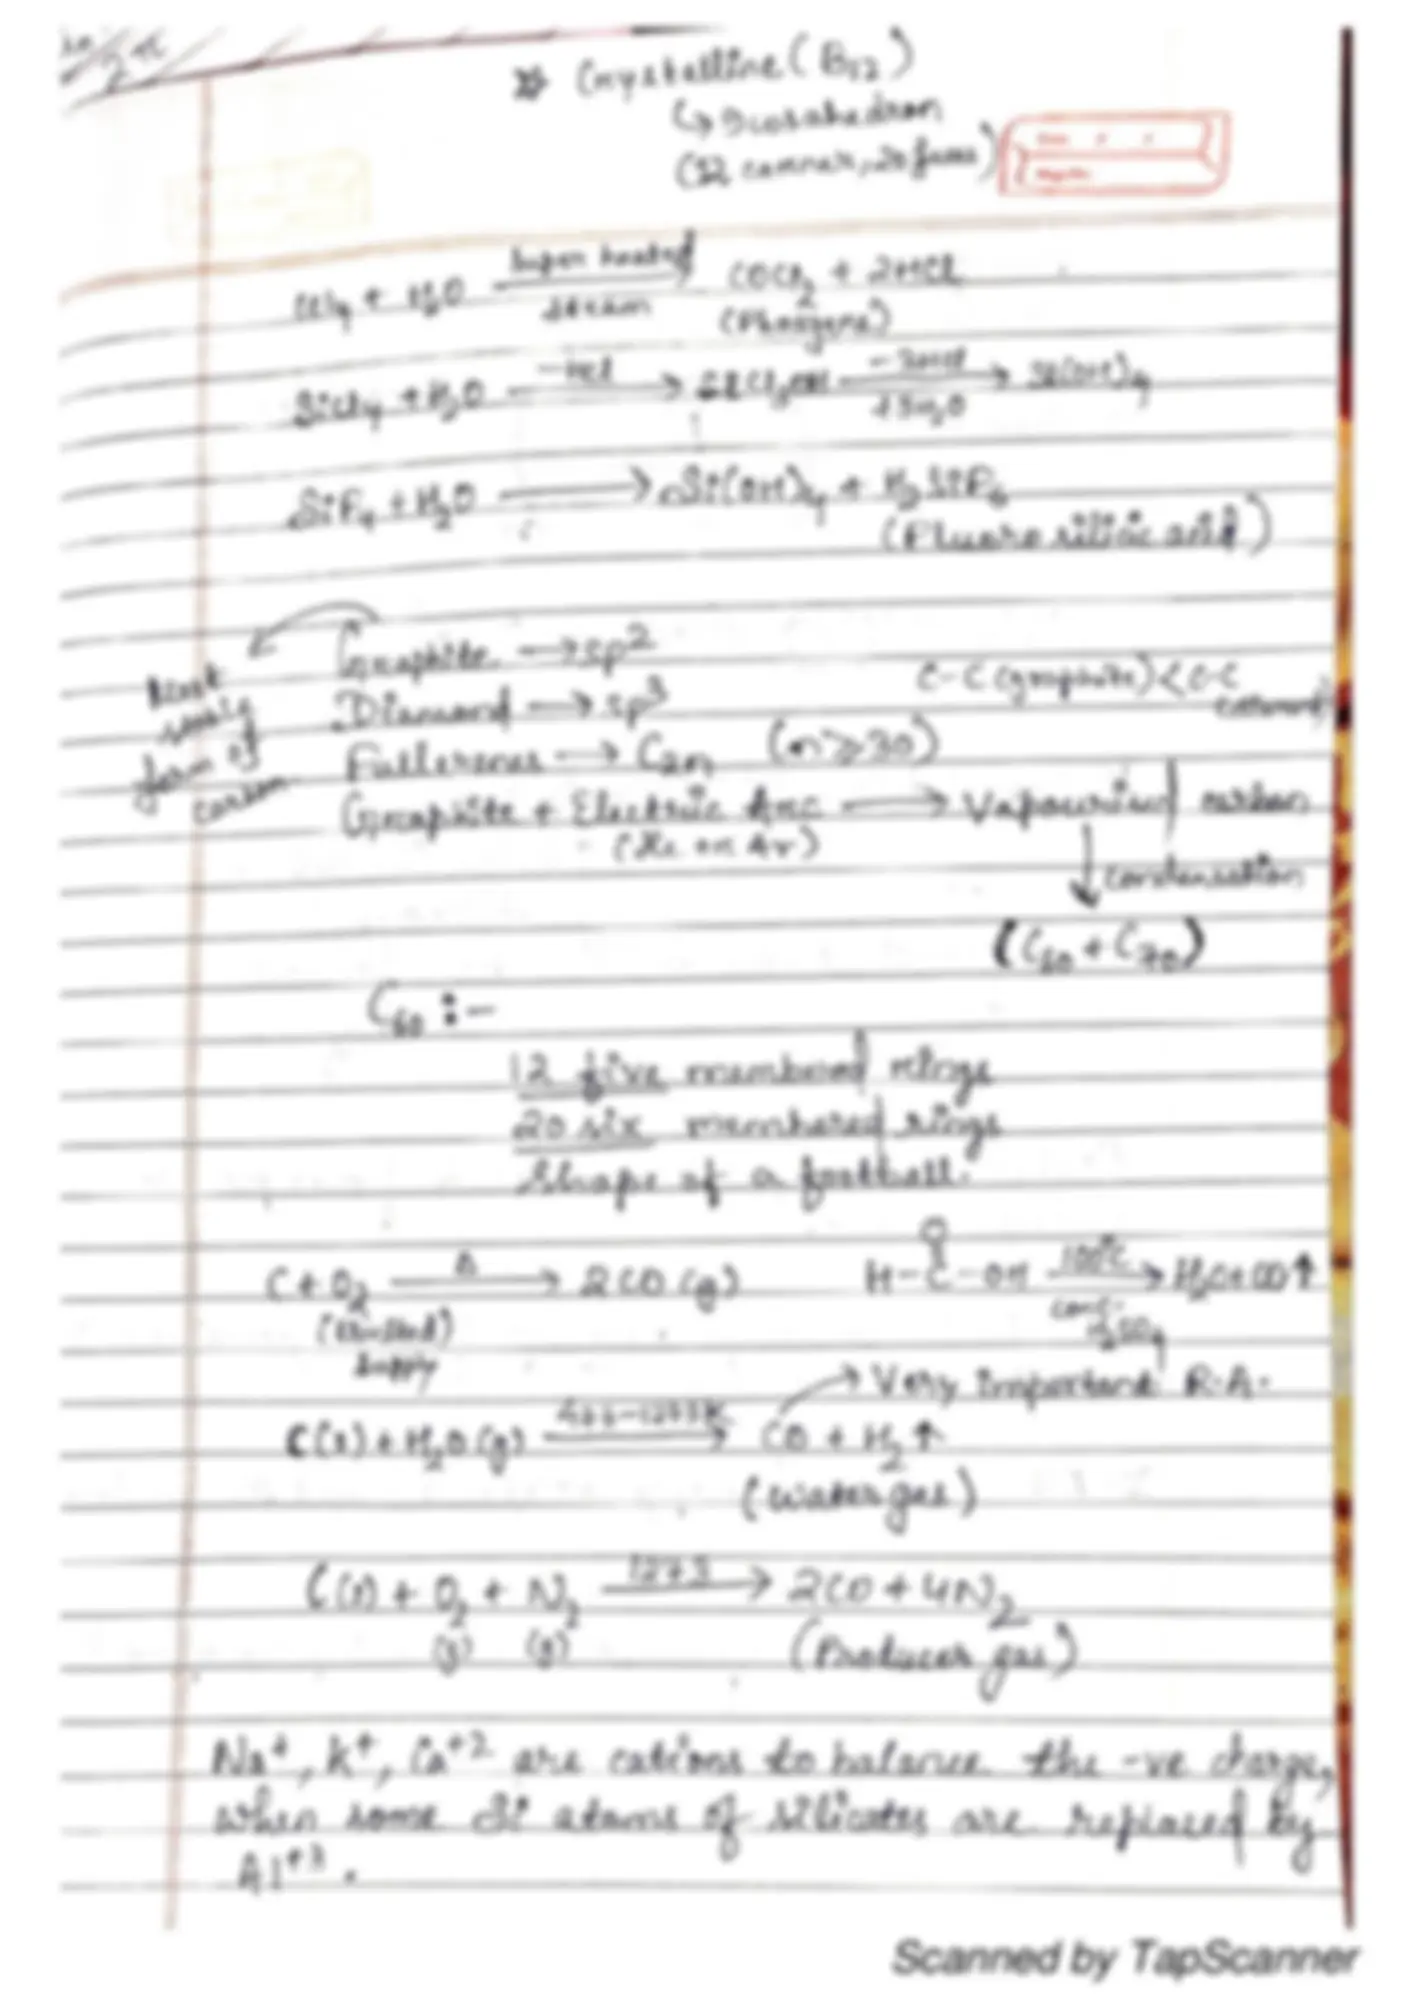 Crystalline (B12)
↳ Icosahedron
(12 corner, 20 faces)
CCl4 + H2O —super heated steam→ COCl2 + 2HCl
(Phosgene)
SiCl4 + H2O —-HCl→ SiCl3OH —-3HCl +3H2O→ Si(OH)4
SiF4 + H2O → Si(OH)4 + H2SiF6
(Fluoro silicic acid)
Graphite → sp2
Most stable form of carbon
C-C (graphite) < C-C (diamond)
Diamond → sp3
Fullerenes → C2n (n≥30)
Graphite + Electric Arc → Vapourised carbon
(He or Ar)
↓ condensation
(C60 + C70)
C60 :-
12 five membered rings
20 six membered rings
Shape of a football.
C + O2 —Δ→ 2CO (g)
(limited) supply
H-C-OH —100°C conc. H2SO4→ H2O + CO↑
O
→ Very important R.A.
C(s) + H2O (g) —473-1273K→ CO + H2↑
(water gas)
C(s) + O2 + N2 —1273→ 2CO + 4N2
(g) (g) (Producer gas)
Na+, K+, Ca+2 are cations to balance the -ve charge,
when some Si atoms of silicates are replaced by
Al+3.
Scanned by TapScanner